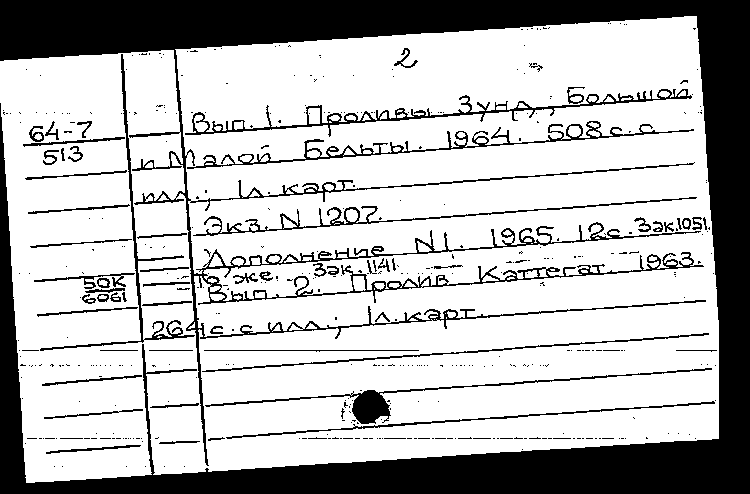 2
64-7
513
Вып. 1. Проливы Зунд, Большой
и Малой Бельты. 1964. 508 с. с
илл.; 1л. карт.
Экз. N 1207.
Дополнение N1. 1965. 12с. Зак.1051.
То же. Зак. 1141
50К
6061
Вып. 2. Пролив Каттегат. 1963.
264 с. с илл.; 1л. карт.